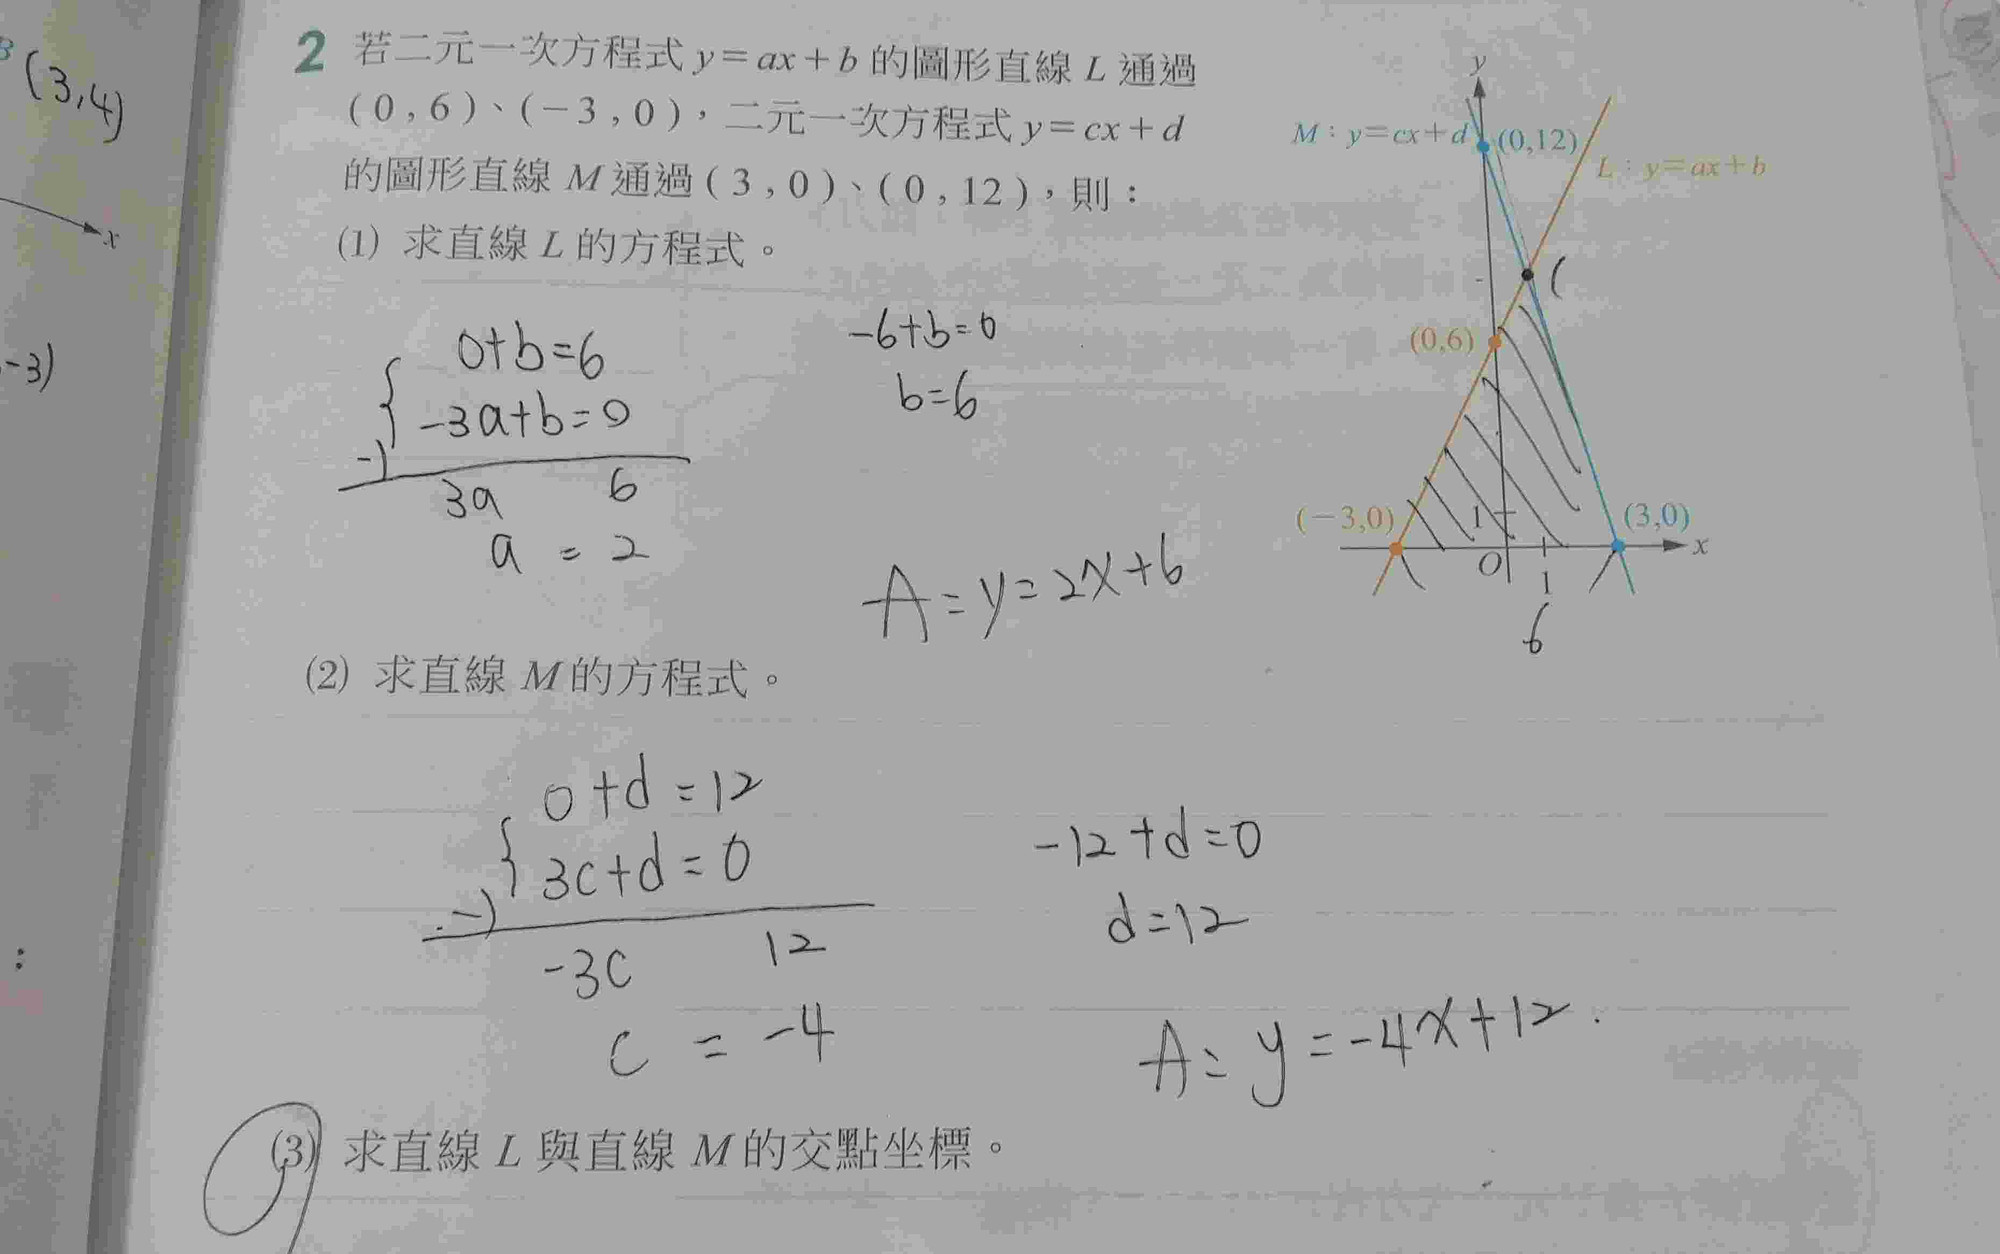 (3,4)
x
-3)
:
2 若二元一次方程式 y=ax+b 的圖形直線 L 通過
(0,6)、(-3,0),二元一次方程式 y=cx+d
的圖形直線 M 通過(3,0)、(0,12),則:
(1) 求直線 L 的方程式。
y
M:y=cx+d
(0,12)
L:y=ax+b
(
(0,6)
(-3,0)
1
(3,0)
O
1
x
6
0+b=6
-3a+b=0
-)
3a 6
a = 2
-6+b=0
b=6
A=y=2x+6
(2) 求直線 M 的方程式。
0+d=12
3c+d=0
-)
-3c 12
c = -4
-12+d=0
d=12
A=y=-4x+12.
(3) 求直線 L 與直線 M 的交點坐標。